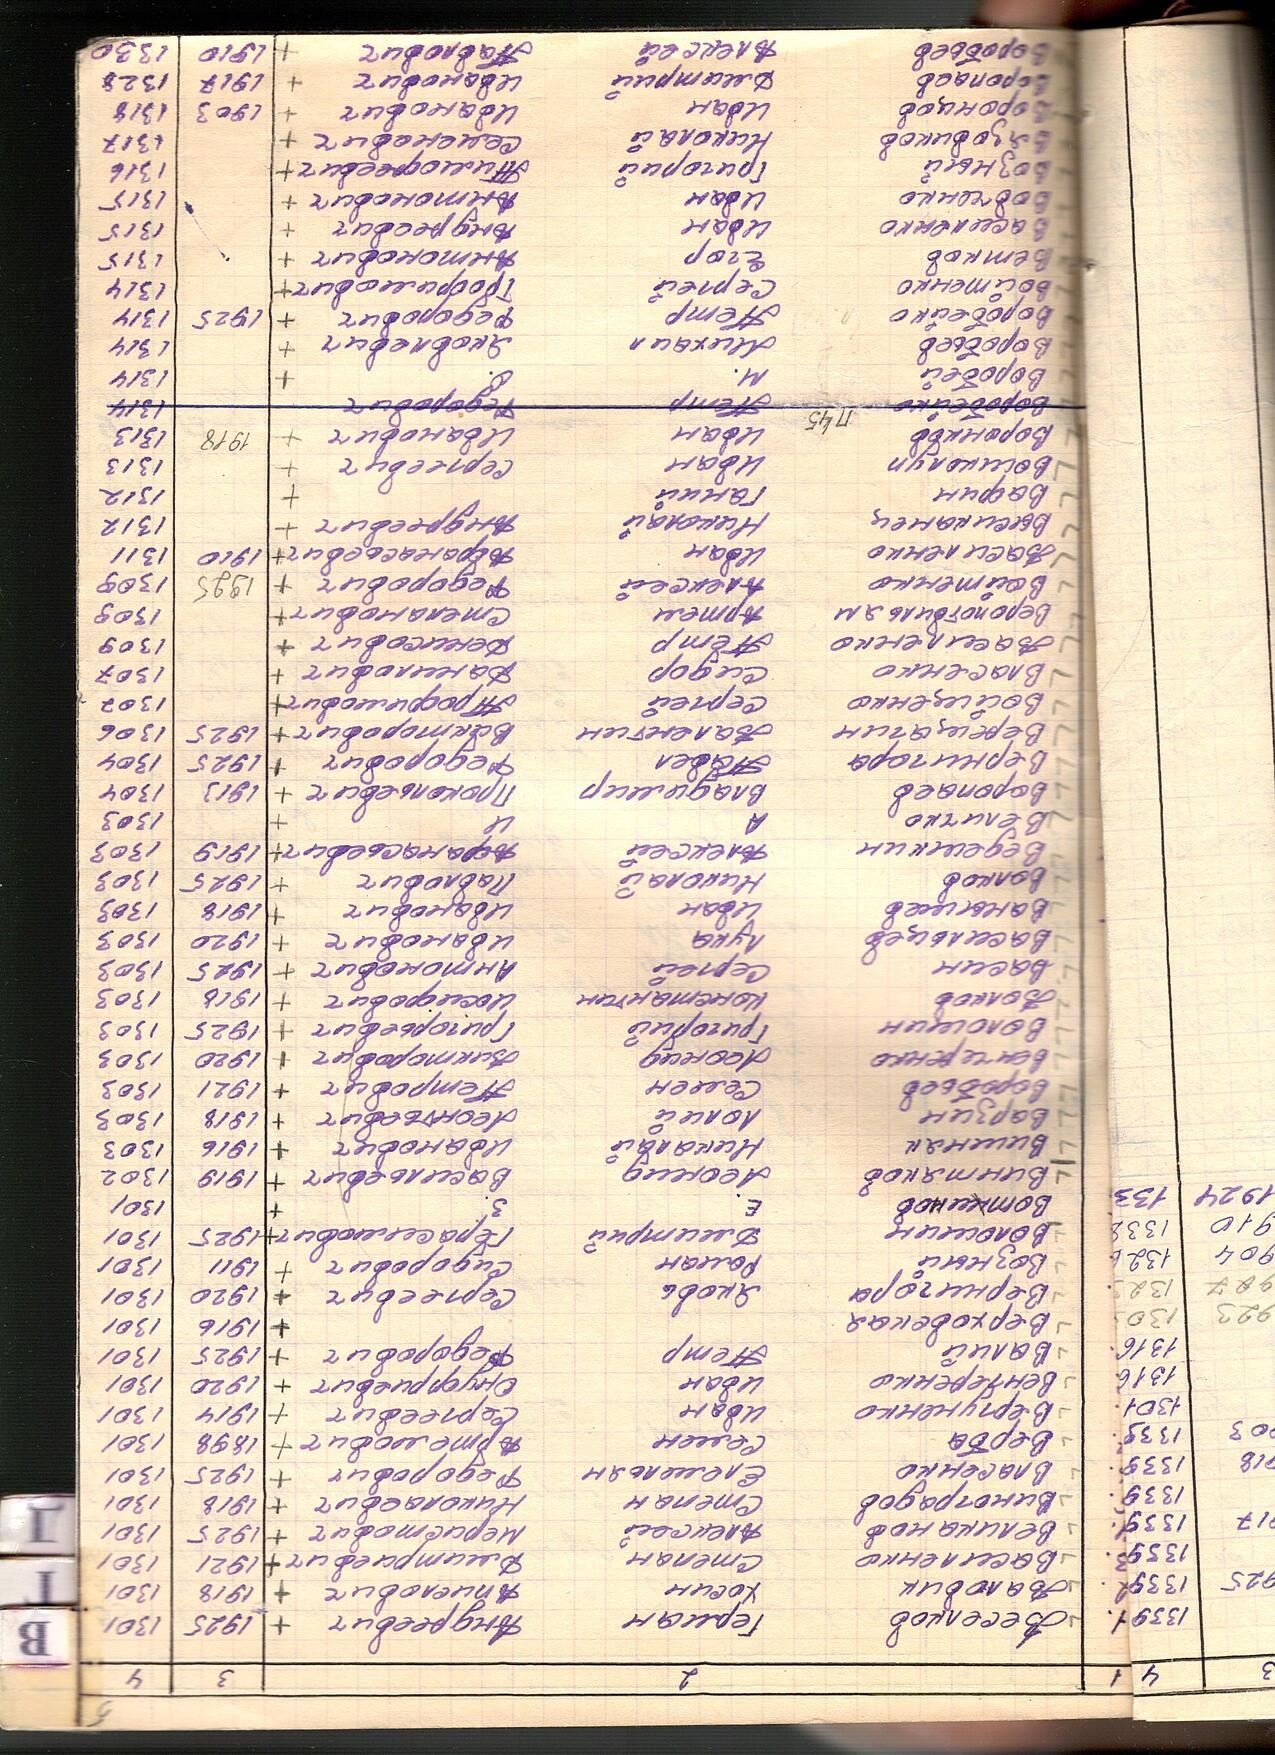 5
1 2 3 4
Веселков Герман Андреевич + 1925 1301
Валовик Хосин Апиелович + 1918 1301
Василенко Степан Дмитриевич + 1921 1301
Великанов Алексей Меристович + 1925 1301
Виноградов Степан Николаевич + 1918 1301
Власенко Емельян Федорович + 1925 1301
Верба Семен Артемович + 1898 1301
Вергуненко Иван Сергеевич + 1914 1301
Вентеренко Иван Онуприевич + 1920 1301
Валий Петр Федорович + 1925 1301
Верховская + 1916 1301
Вернигора Яковь Сергеевич + 1920 1301
Возный Роман Сидорович + 1911 1301
Волошин Дмитрий Герасимович + 1925 1301
Вотинов Е. З. + 1301
Винтяков Леонид Васильевич + 1919 1302
Вишняк Николай Иванович + 1916 1303
Варзин Лолий Леонтьевич + 1918 1303
Воробьев Семен Петрович + 1921 1303
Ванчеренко Леонид Викторович + 1920 1303
Волошин Григорий Григорьевич + 1925 1303
Волков Константин Иосифович + 1918 1303
Васин Сергей Антонович + 1925 1303
Васильцев Лука Иванович + 1920 1303
Ванышев Иван Иванович + 1918 1303
Волков Николай Павлович + 1925 1303
Ведешкин Алексей Афанасьевич + 1919 1303
Величко А И + 1303
Воропаев Владимир Прокопьевич + 1913 1304
Вернигора Павел Федорович + 1925 1304
Верещагин Валентин Викторович + 1925 1306
Войщенко Сергей Трофимович + 1307
Власенко Сидор Данилович + 1307
Василенко Петр Денисович + 1309
Артем Степанович + 1309
Войтенко Алексей Федорович + 1925 1309
Василенко Иван Афанасьевич + 1910 1311
Высиканец Николай Андреевич + 1312
Вафин Ганий + 1312
Вошколуп Иван Сергеевич + 1313
Воронков Иван Иванович + 1918 1313
П45
Воробейко Петр Федорович 1314
Воробей М. О. + 1314
Воробьев Михаил Яковлевич + 1314
Воробейко Петр Федорович + 1925 1314
Войтенко Сергей Трофимович + 1314
Ветков Егор Антонович + 1315
Василенко Иван Андреевич + 1315
Вовченко Иван Антонович + 1315
Возный Григорий Тимофеевич + 1316
Вязовиков Николай Семенович + 1317
Воронцов Иван Иванович + 1903 1318
Воропаев Дмитрий Иванович + 1917 1328
Воробьев Алексей Павлович + 1910 1330
3 4
13391
925 1339
1339
917 1339
1339
918 1339
903 1339
1301
1316
1316
923
927
904
910
1924
В
Г